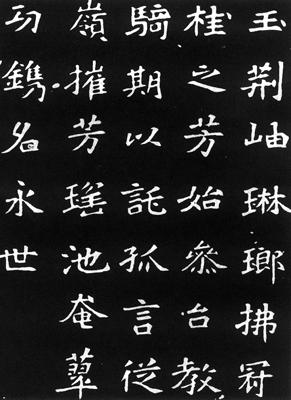 玉荆岫琳瑯拂冠
桂之芳始叅台教
騎期以託孤言從
嶺摧芳瑤池奄
功鐫名永世